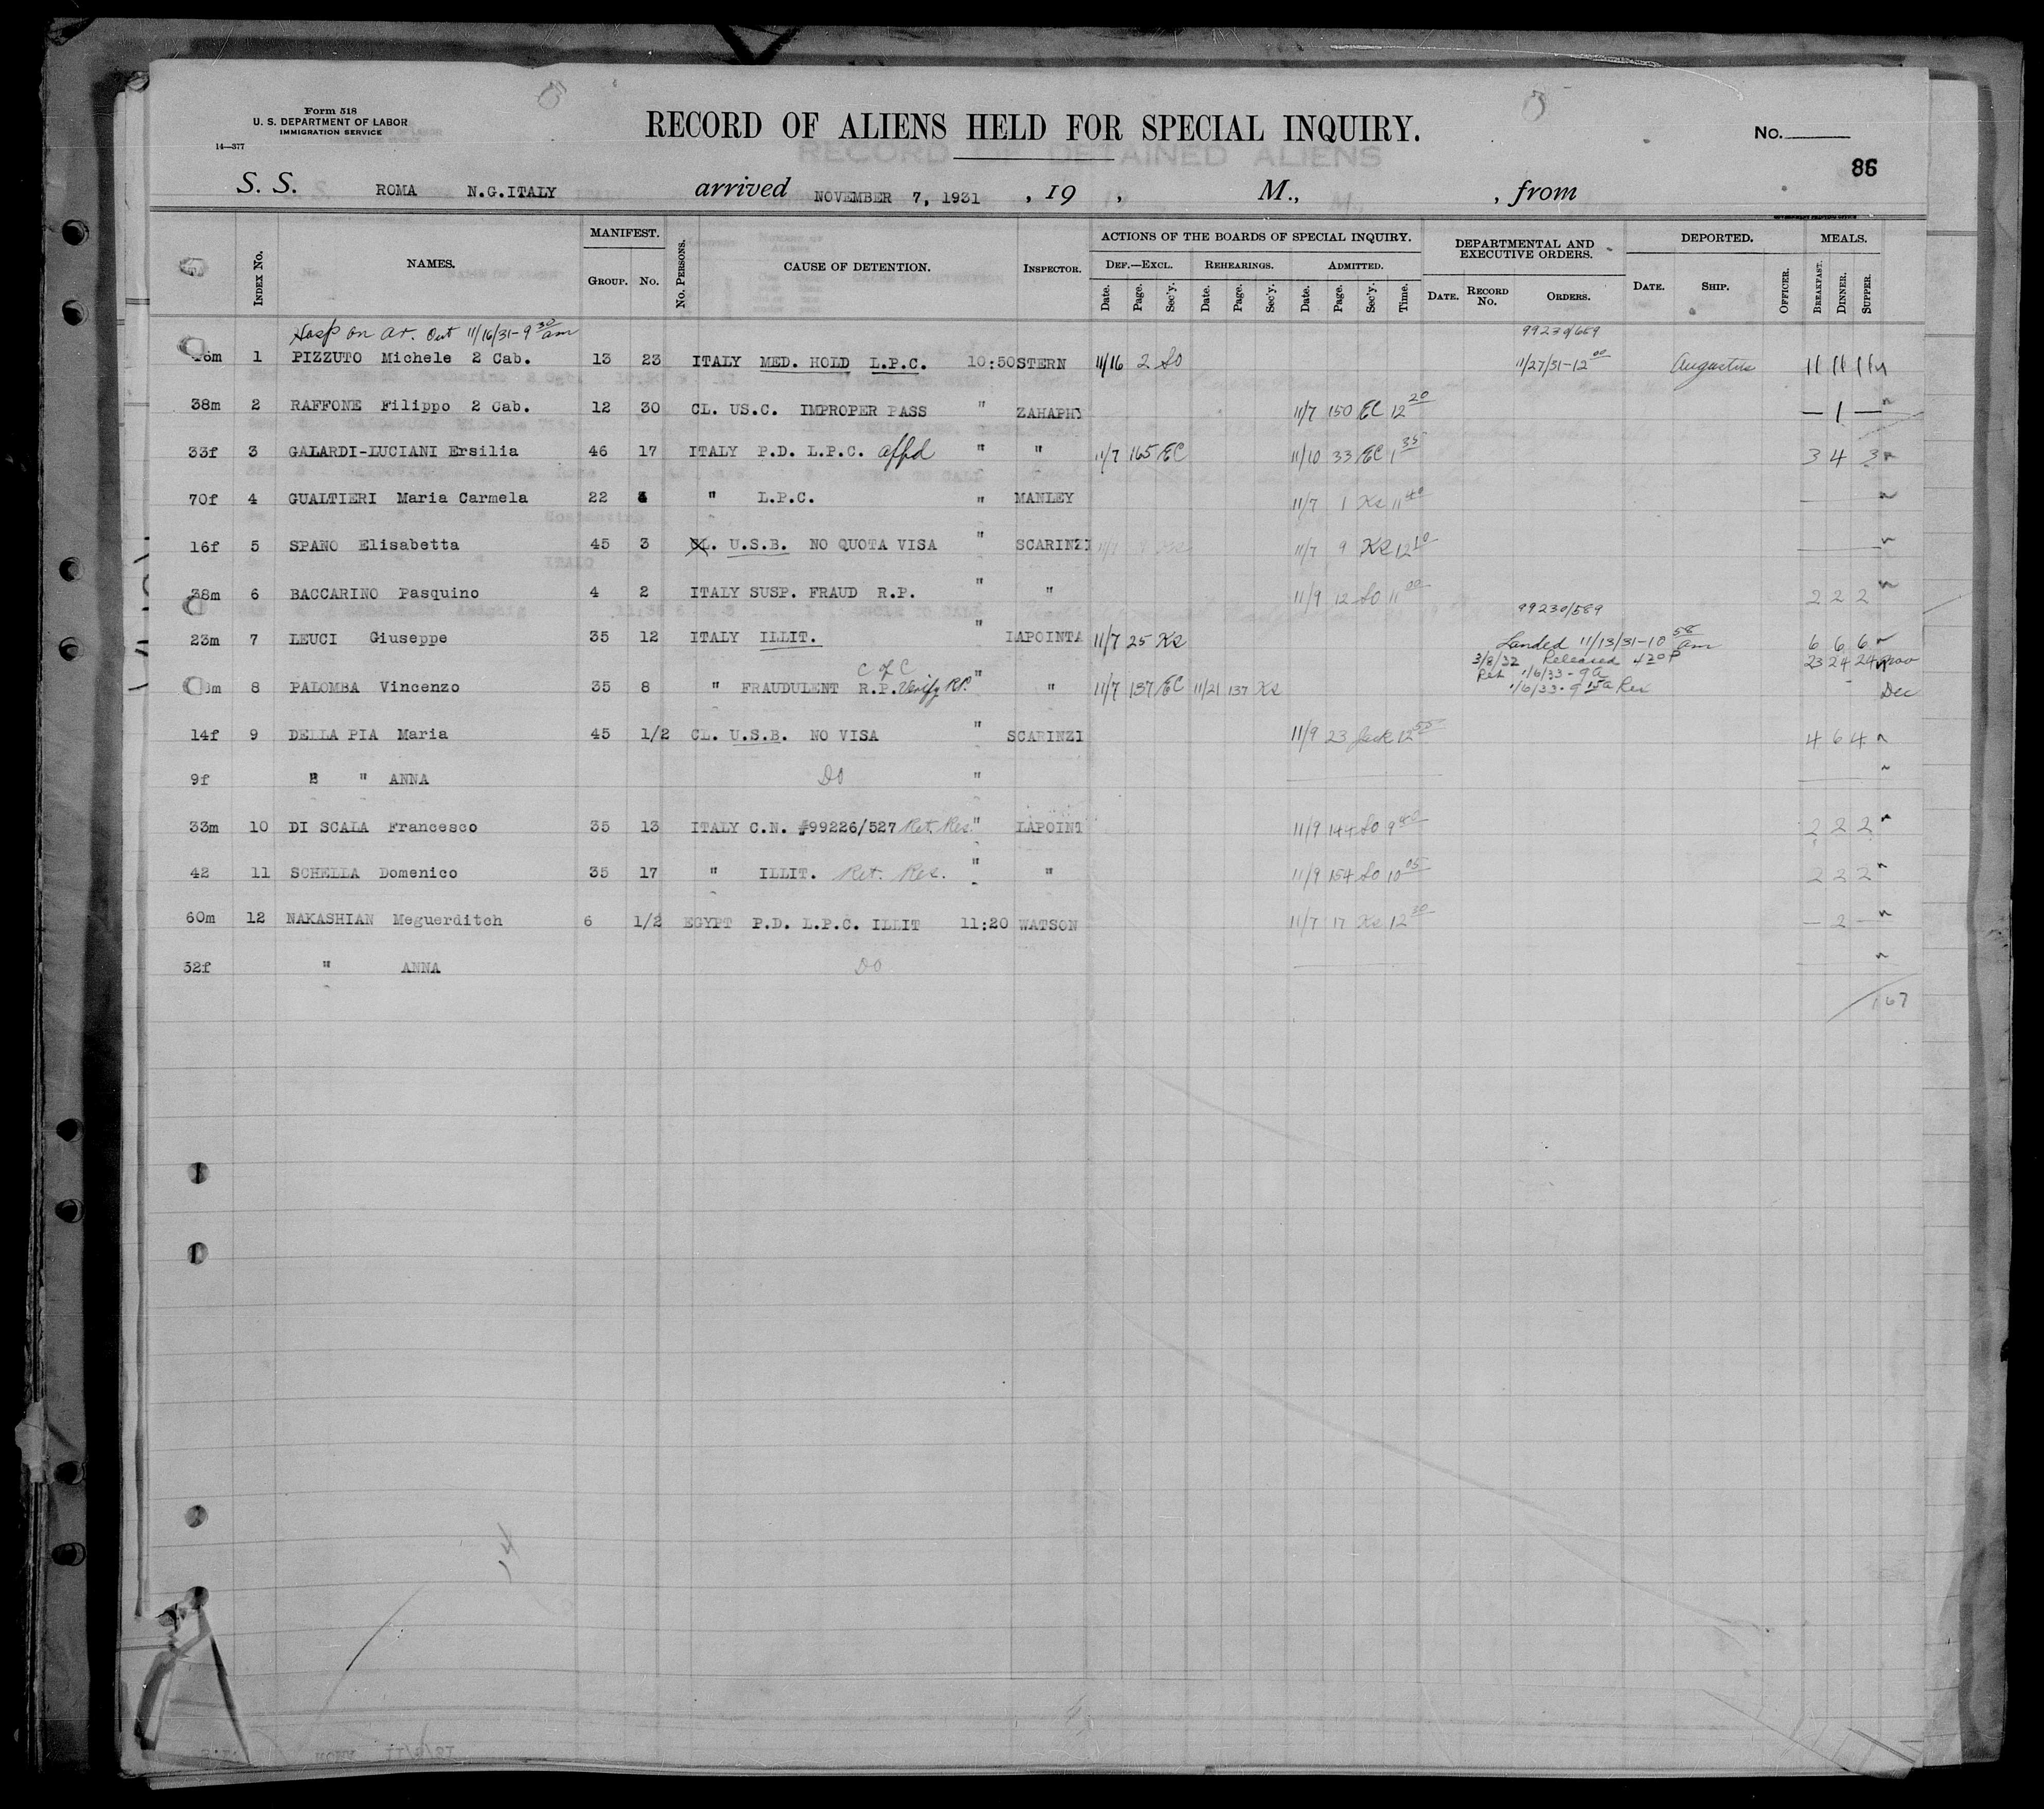 Form 518
U. S. DEPARTMENT OF LABOR
IMMIGRATION SERVICE
14—377
RECORD OF ALIENS HELD FOR SPECIAL INQUIRY.
No.
86
S. S. ROMA N.G.ITALY arrived NOVEMBER 7, 1931 , 19 , M., , from
INDEX NO. NAMES. MANIFEST. GROUP. NO. NO. PERSONS. CAUSE OF DETENTION. INSPECTOR. ACTIONS OF THE BOARDS OF SPECIAL INQUIRY. DEPARTMENTAL AND EXECUTIVE ORDERS. DEPORTED. MEALS.
DEF.—EXCL. REHEARINGS. ADMITTED.
Date. Page. Sec'y. Date. Page. Sec'y. Date. Page. Sec'y. Time. DATE. RECORD NO. ORDERS. DATE. SHIP. OFFICER. BREAKFAST. DINNER. SUPPER.
Hosp on Ar. Out 11/16/31-9 30 am 99230/659
1 PIZZUTO Michele 2 Cab. 13 23 ITALY MED. HOLD L.P.C. 10:50 STERN 11/16 2 So 11/27/31-12 00 Augustus 11 11 11
38m 2 RAFFONE Filippo 2 Cab. 12 30 CL. US.C. IMPROPER PASS " ZAHAPHY 11/7 150 EC 12 20 — 1 —
33f 3 GALARDI-LUCIANI Ersilia 46 17 ITALY P.D. L.P.C. affd " " 11/7 165 EC 11/10 33 EC 1 35 3 4 3
70f 4 GUALTIERI Maria Carmela 22 " L.P.C. " MANLEY 11/7 1 Ks 11 40
16f 5 SPANO Elisabetta 45 3 CL. U.S.B. NO QUOTA VISA " SCARINZI 11/7 9 Ks 12 10
38m 6 BACCARINO Pasquino 4 2 ITALY SUSP. FRAUD R.P. " " 11/9 12 So 11 00 2 2 2
99230/589
23m 7 LEUCI Giuseppe 35 12 ITALY ILLIT. " LAPOINTA 11/7 25 Ks Landed 11/13/31-10 58 am 6 6 6
C of C 3/8/32 Released 430P 23 24 24 Nov
Ret 1/6/33-9a
8 PALOMBA Vincenzo 35 8 " FRAUDULENT R.P. Verify RP. " " 11/7 137 EC 11/21 137 Ks 1/6/33-9 15a Rel Dec
14f 9 DELLA PIA Maria 45 1/2 CL. U.S.B. NO VISA " SCARINZI 11/9 23 12 55 4 6 4
9f " " ANNA DO "
33m 10 DI SCALA Francesco 35 13 ITALY C.N. #99226/527 Ret. Res. " LAPOINT 11/9 144 So 9 40 2 2 2
42 11 SCHELLA Domenico 35 17 " ILLIT. Ret. Res. " " 11/9 154 So 10 05 2 2 2
60m 12 NAKASHIAN Meguerditch 6 1/2 EGYPT P.D. L.P.C. ILLIT 11:20 WATSON 11/7 17 Ks 12 30 — 2 —
32f " ANNA DO
167